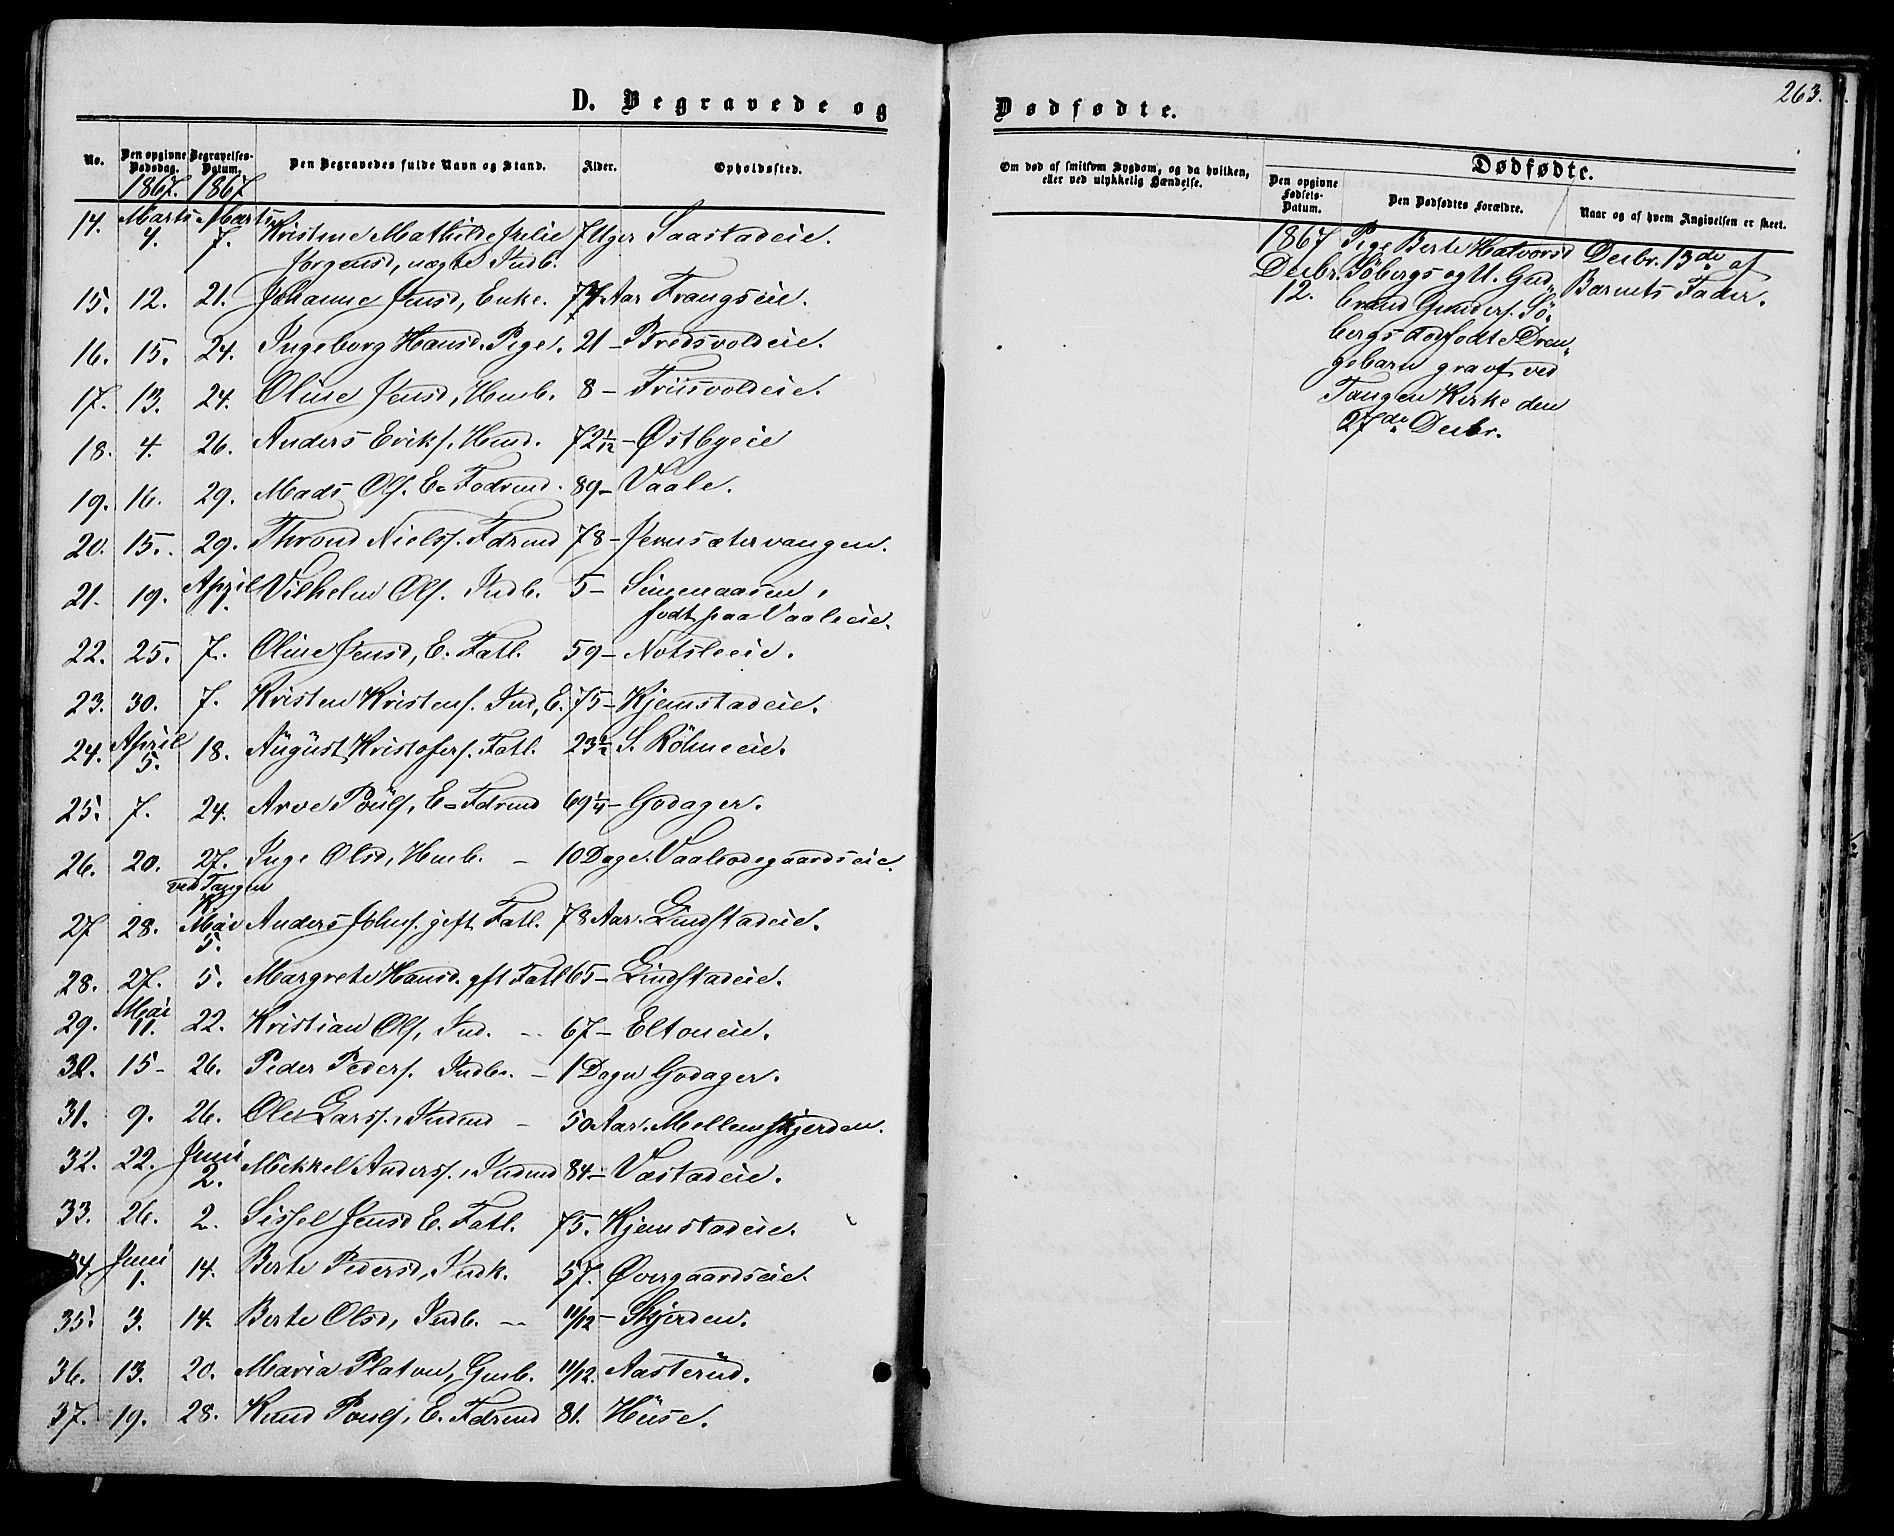 D. Begravede og
No. Den opgivne Dødsdag. Begravelses-Datum. Den Begravedes fulde Navn og Stand. Alder. Opholdssted.
1867. 1867
14. Marts 4. Marts 7. Kristine Mathilde Julie 7 Uger Saastadeie.
Jørgensd, nægte Indb.
15. 12. 21. Johanne Jensd, Enke. 77 Aar Frangseie.
16. 15. 24. Ingeborg Hansd. Pige. 21 – Bredsvoldeie.
17. 13. 24. Oline Jensd, Hmb. 8 – Friisvoldeie.
18. 4. 26. Anders Eriks. Hmd. 72 1/12 – Østbyeie
19. 16. 29. Mads Ols. E= Fodrmd. 89 – Vaale.
20. 15. 29. Thrond Nielss. Fdrmd 78 – Jernsætervangen.
21. 19. April 1. Vilhelm Ols. Indb. 5 – Simenaasen,
født paa Vaaleeie.
22. 25. 7. Oline Jensd, E. Fatl. 59 – Nötsleeie.
23. 30. 7. Kristen Kristens. Ind, E. 75 – Kjemstadeie.
24. April 5. 18. August Kristofers. Fatl. 23 S. Röhneeie.
25. 7. 24. Arve Pouls, E= Fdrmd 69 1/4 – Godager.
26. 20. 27. Inge Olsd, Hmb. – 10 Dage. Vaalsodegaardseie.
ved Tangen K.
27 28. Mai 5. Anders Johns. gift Fatl. 78 Aar. Lindstadeie.
28. 27. 5. Margrete Hansd. gft Fatl 65 – Lindstadeie.
29. Mai 11. 22. Kristian Ols, Ind. – 67 – Eltoneie.
30. 15 – 26. Peder Peders. Indb. – 1 Døgn Godager.
31. 9. 26. Ole Larss., Indmd – 50 Aar. Mellemskjerden.
32. 22. Juni 2. Mikkel Anderss., Indmd 84 – Vastadeie.
33. 26. 2. Sissel Jensd E. Fatl. 75. Kjemstadeie.
34. Juni 1. 14. Berte Pedersd, Indk. 57. Øvergaardseie.
35. 3. 14. Berte Olsd, Indb. – 11/12 – Skjerden.
36. 13. 20. Maria Platou, Gmb. 11/12. Aasterud.
37. 19. 28. Knud Pouls, E. Fdrmd 81. Huse.
263.
Dødfødte.
Om død af smitsom Sygdom, og da hvilken, eller ved ulykkelig Hændelse.
Dødfødte.
Den opgivne Fødsels-Datum. Den Dødfødtes Forældre. Naar og af hvem Angivelsen er skeet.
1867 Pige Berte Halvorsd Decbr. 13de af
Decbr. Söbergs og U. Gud= Barnets Fader.
12. brand Gunders. Sö=
bergs dødfødte Dren=
gebarn gravf. ved
Tangen Kirke den
27de Decbr.